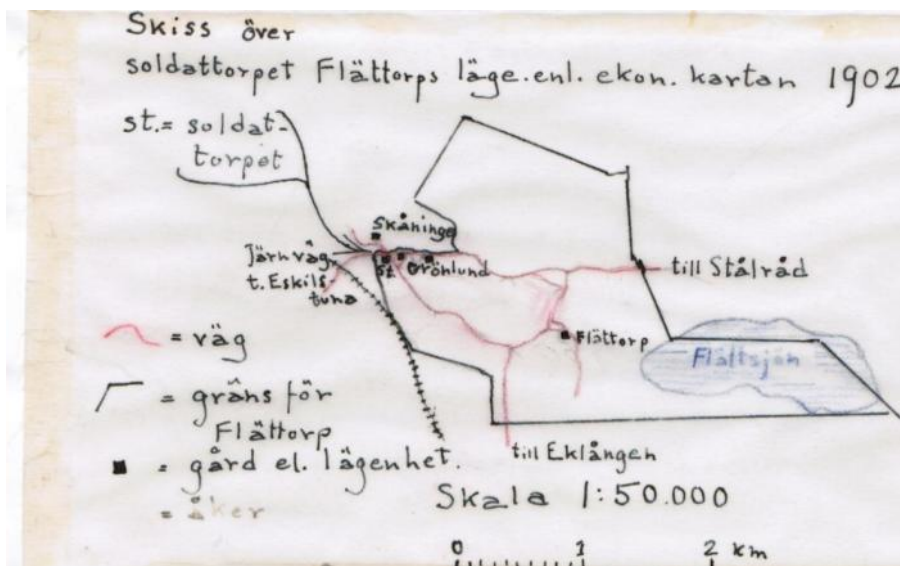 Skiss över
soldattorpet Flättorps läge. enl. ekon. kartan 1902
st. = soldat-
torpet
Skåninge
Järnväg
t. Eskils
tuna
St.
Grönlund
till Stålråd
väg
= väg
Flättorp
Flättsjön
= gräns för
Flättorp
= gård el. lägenhet.
till Eklången
= åker
Skala 1:50.000
0 1 2 km